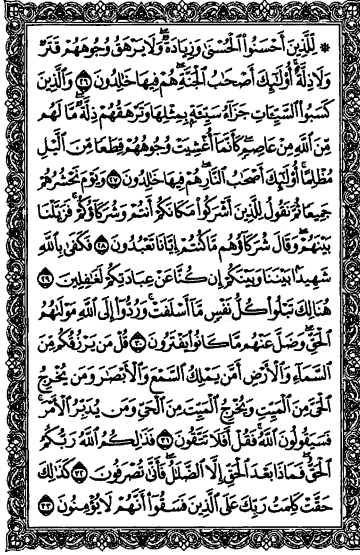 ۞ لِّلَّذِينَ أَحْسَنُوا۟ ٱلْحُسْنَىٰ وَزِيَادَةٌ ۖ وَلَا يَرْهَقُ وُجُوهَهُمْ قَتَرٌ
وَلَا ذِلَّةٌ ۚ أُو۟لَـٰٓئِكَ أَصْحَـٰبُ ٱلْجَنَّةِ ۖ هُمْ فِيهَا خَـٰلِدُونَ ۝٢٦ وَٱلَّذِينَ
كَسَبُوا۟ ٱلسَّيِّـَٔاتِ جَزَآءُ سَيِّئَةٍۭ بِمِثْلِهَا وَتَرْهَقُهُمْ ذِلَّةٌ ۖ مَّا لَهُم
مِّنَ ٱللَّهِ مِنْ عَاصِمٍ ۖ كَأَنَّمَآ أُغْشِيَتْ وُجُوهُهُمْ قِطَعًا مِّنَ ٱلَّيْلِ
مُظْلِمًا ۚ أُو۟لَـٰٓئِكَ أَصْحَـٰبُ ٱلنَّارِ ۖ هُمْ فِيهَا خَـٰلِدُونَ ۝٢٧ وَيَوْمَ نَحْشُرُهُمْ
جَمِيعًا ثُمَّ نَقُولُ لِلَّذِينَ أَشْرَكُوا۟ مَكَانَكُمْ أَنتُمْ وَشُرَكَآؤُكُمْ ۚ فَزَيَّلْنَا
بَيْنَهُمْ ۖ وَقَالَ شُرَكَآؤُهُم مَّا كُنتُمْ إِيَّانَا تَعْبُدُونَ ۝٢٨ فَكَفَىٰ بِٱللَّهِ
شَهِيدًۢا بَيْنَنَا وَبَيْنَكُمْ إِن كُنَّا عَنْ عِبَادَتِكُمْ لَغَـٰفِلِينَ ۝٢٩
هُنَالِكَ تَبْلُوا۟ كُلُّ نَفْسٍ مَّآ أَسْلَفَتْ ۚ وَرُدُّوٓا۟ إِلَى ٱللَّهِ مَوْلَىٰهُمُ
ٱلْحَقِّ ۖ وَضَلَّ عَنْهُم مَّا كَانُوا۟ يَفْتَرُونَ ۝٣٠ قُلْ مَن يَرْزُقُكُم مِّنَ
ٱلسَّمَآءِ وَٱلْأَرْضِ أَمَّن يَمْلِكُ ٱلسَّمْعَ وَٱلْأَبْصَـٰرَ وَمَن يُخْرِجُ
ٱلْحَىَّ مِنَ ٱلْمَيِّتِ وَيُخْرِجُ ٱلْمَيِّتَ مِنَ ٱلْحَىِّ وَمَن يُدَبِّرُ ٱلْأَمْرَ ۚ
فَسَيَقُولُونَ ٱللَّهُ ۚ فَقُلْ أَفَلَا تَتَّقُونَ ۝٣١ فَذَٰلِكُمُ ٱللَّهُ رَبُّكُمُ
ٱلْحَقُّ ۖ فَمَاذَا بَعْدَ ٱلْحَقِّ إِلَّا ٱلضَّلَـٰلُ ۖ فَأَنَّىٰ تُصْرَفُونَ ۝٣٢ كَذَٰلِكَ
حَقَّتْ كَلِمَتُ رَبِّكَ عَلَى ٱلَّذِينَ فَسَقُوٓا۟ أَنَّهُمْ لَا يُؤْمِنُونَ ۝٣٣